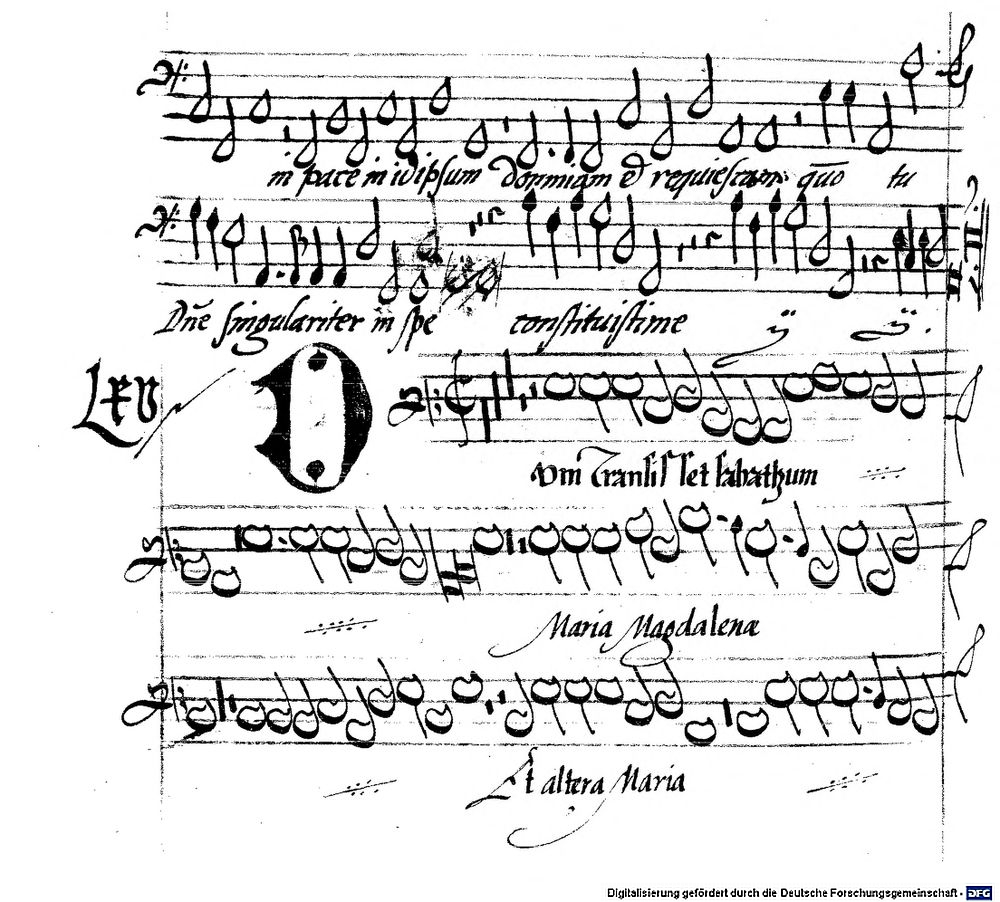 in pace in idipsum dormiam et requiescam qūo tu
Dn̄e singulariter in spe constituisti me ij ij.
LXV
Cum Transisset sabathum
Maria Magdalenæ
Et altera Maria
Digitalisierung gefördert durch die Deutsche Forschungsgemeinschaft - DFG